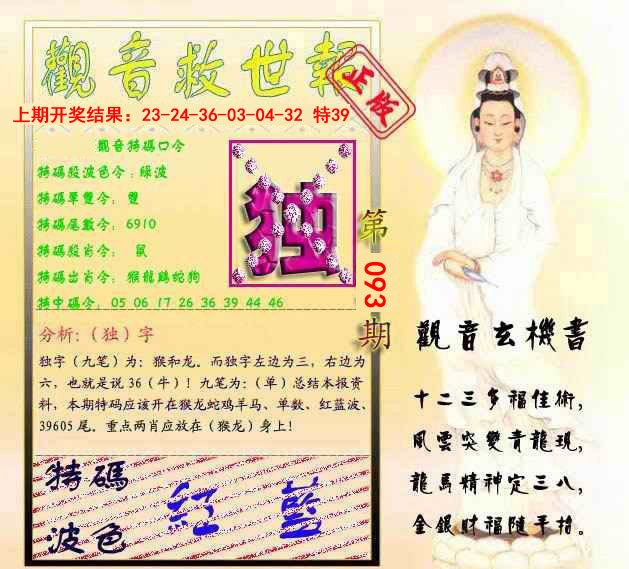 觀音救世報
正版
上期开奖结果：23-24-36-03-04-32 特39
觀音特碼口令
特碼殺波色令：綠波
特碼單雙令： 雙
特碼尾數令： 6910
特碼殺肖令： 鼠
特碼出肖令： 猴龍鷄蛇狗
特中碼令： 05 06 17 26 36 39 44 46
独
第093期
分析:（独）字
独字（九笔）为：猴和龙。而独字左边为三，右边为
六，也就是说 36（牛）！九笔为：（单）总结本报资
料，本期特码应该开在猴龙蛇鸡羊马、单数、红蓝波、
39605 尾。重点两肖应放在（猴龙）身上！
特碼
波色
紅 藍
觀音玄機書
十二三多福佳術，
風雲突變青龍現，
龍馬精神定三八，
金銀財福隨手拾。